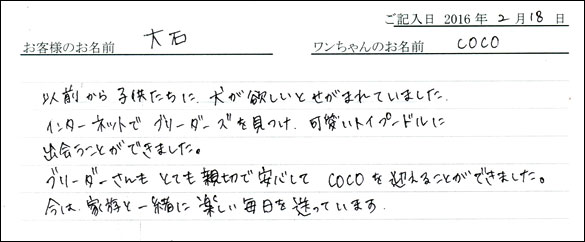 ご記入日 2016 年 2 月 18 日
お客様のお名前 大石 ワンちゃんのお名前 COCO
以前から子供たちに、犬が欲しいとせがまれていました。
インターネットでブリーダーズを見つけ、可愛いトイプードルに
出会うことができました。
ブリーダーさんもとても親切で安心して COCOを迎えることができました。
今は、家族と一緒に楽しい毎日を送っています。